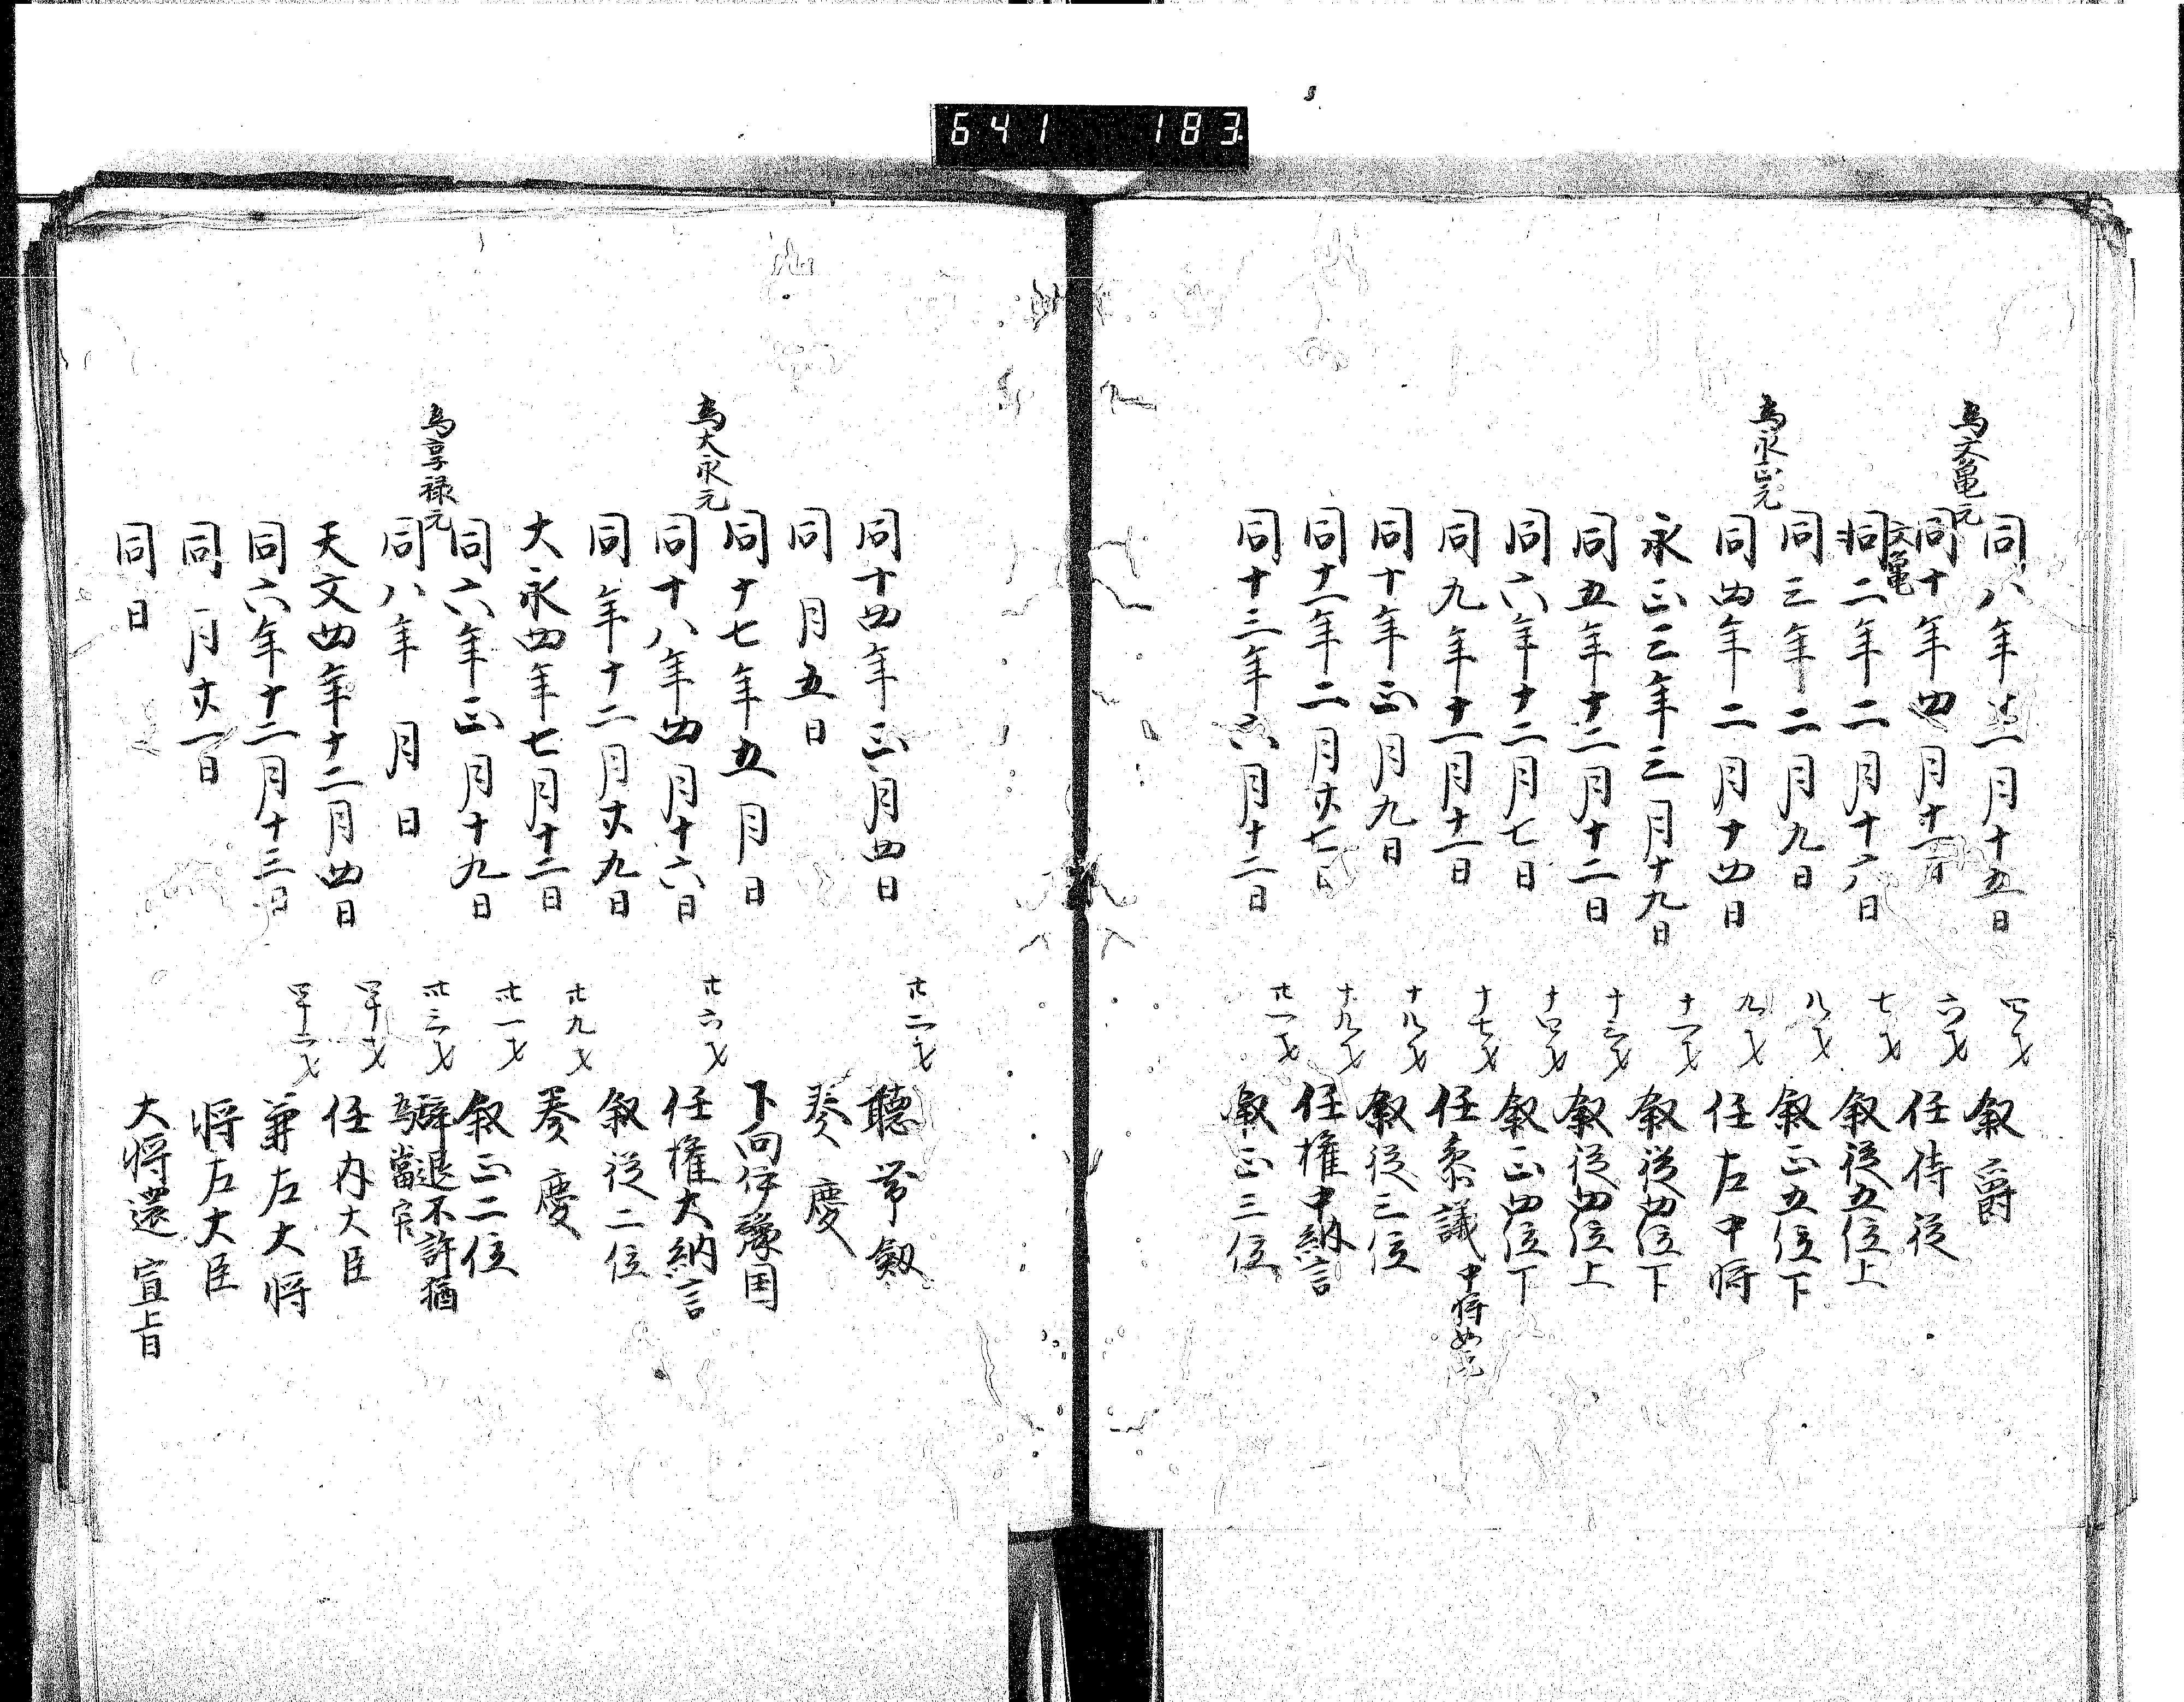 641 183
同八年十一月十五日 四才 叙爵
為文亀元
同十年四月十一日 六才 任侍従
文亀
同二年二月十六日 七才 叙従五位上
同三年二月九日 八才 叙正五位下
為永正元
同四年二月十四日 九才 任左中将
永正三年三月十九日 十一才 叙従四位下
同五年十二月十二日 十三才 叙従四位上
同六年十二月七日 十四才 叙正四位下
同九年十一月十一日 十七才 任参議 中将如元
同十年正月九日 十八才 叙従三位
同十一年二月廿七日 十九才 任権中納言
同十三年六月十二日 廿一才 叙正三位
同十四年三月四日 廿二才 聴帯剱
同 月五日 奏慶
同十七年五月 日 下向伊豫国
為大永元
同十八年四月十六日 廿六才 任權大納言
同年十二月廿九日 叙従二位
大永四年七月十二日 廿九才 奏慶
同六年正月十九日 卅一才 叙正二位
為享禄元
同八年 月 日 卅三才 辞退不許猶為當官
天文四年十二月四日 四十才 任内大臣
同六年十二月十三日 四十二才 兼左大将
同 月廿一日 将左大臣
同日 大将還宣旨